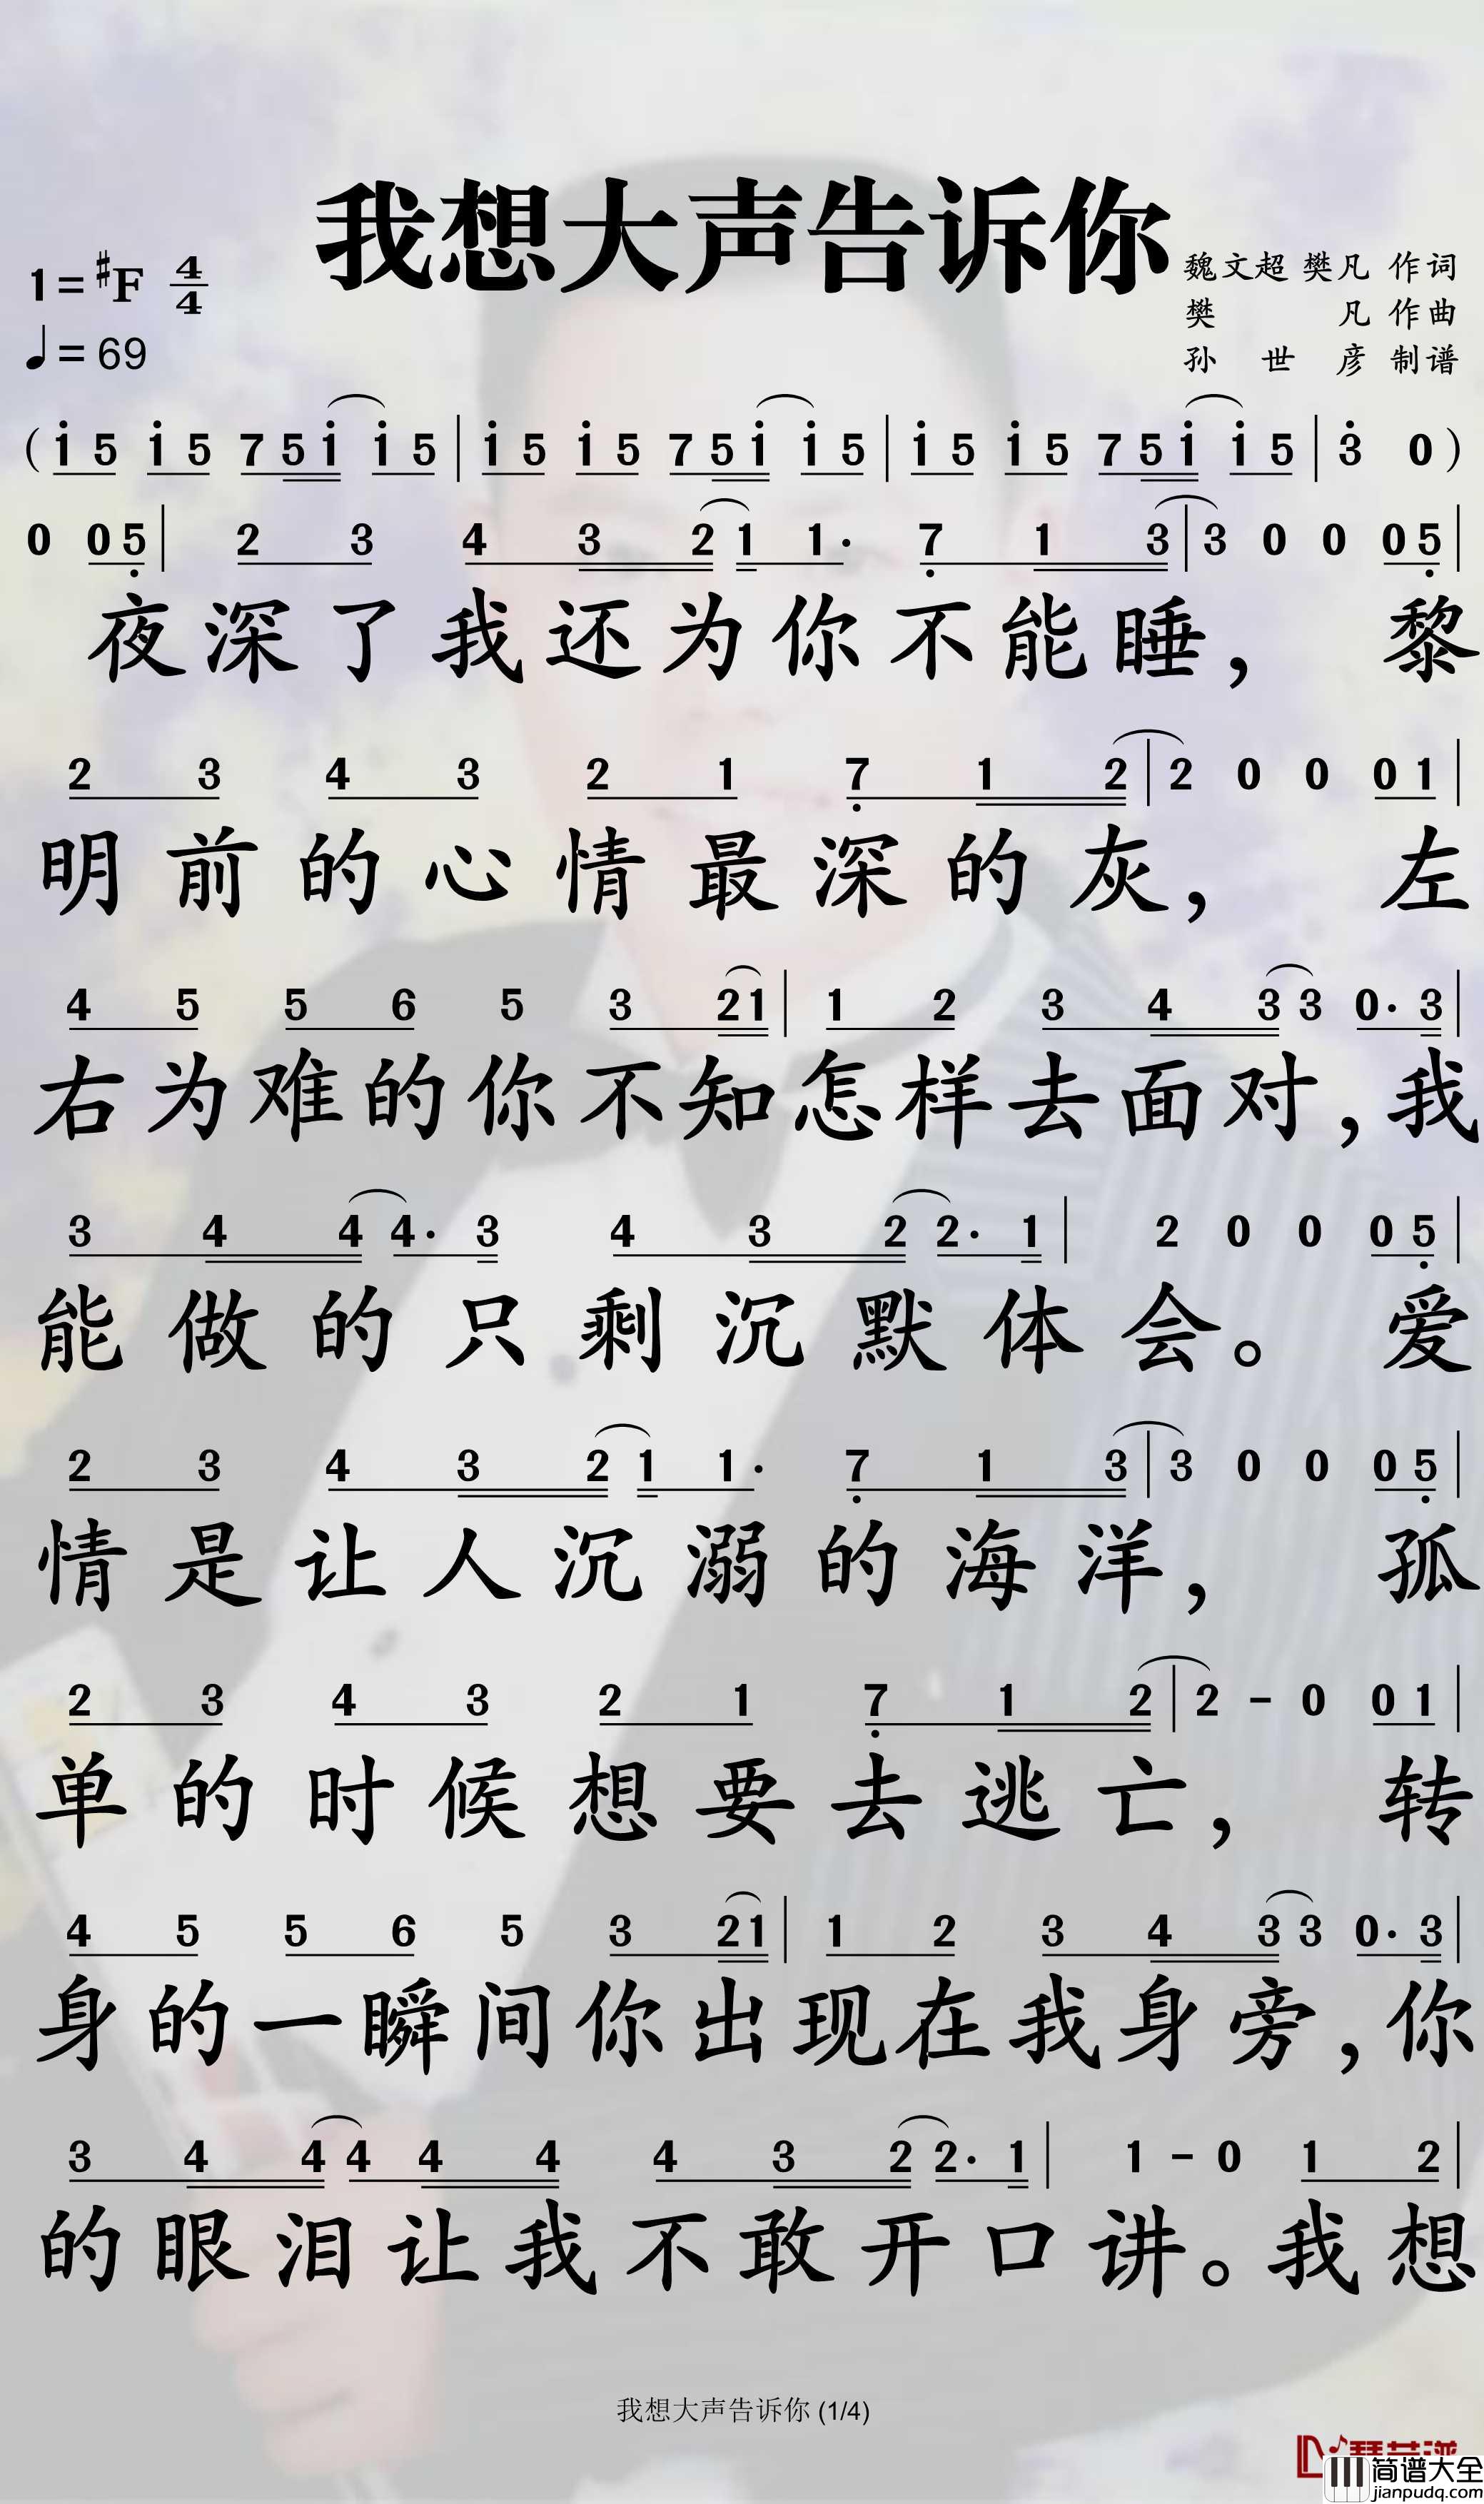 我想大声告诉你
1=♯F 4/4
♩=69
魏文超 樊凡 作词
樊凡 作曲
孙世彦 制谱
(i 5 i 5 7 5 i i 5 | i 5 i 5 7 5 i i 5 | i 5 i 5 7 5 i i 5 | 3̇ 0)
0 0 5̣ | 2 3 4 3 2 1 1· 7̣ 1 3 | 3 0 0 0 5̣ |
夜深了我还为你不能睡，黎
2 3 4 3 2 1 7̣ 1 2 | 2 0 0 0 1 |
明前的心情最深的灰，左
4 5 5 6 5 3 2 1 | 1 2 3 4 3 3 0· 3 |
右为难的你不知怎样去面对，我
3 4 4 4· 3 4 3 2 2· 1 | 2 0 0 0 5̣ |
能做的只剩沉默体会。爱
2 3 4 3 2 1 1· 7̣ 1 3 | 3 0 0 0 5̣ |
情是让人沉溺的海洋，孤
2 3 4 3 2 1 7̣ 1 2 | 2 - 0 0 1 |
单的时候想要去逃亡，转
4 5 5 6 5 3 2 1 | 1 2 3 4 3 3 0· 3 |
身的一瞬间你出现在我身旁，你
3 4 4 4 4 4 4 3 2 2· 1 | 1 - 0 1 2 |
的眼泪让我不敢开口讲。我想
我想大声告诉你 (1/4)
简谱大全
jianpudq.com